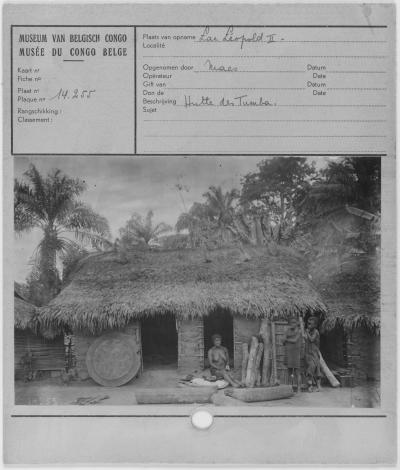 MUSEUM VAN BELGISCH CONGO
MUSÉE DU CONGO BELGE
Kaart nr
Fiche no
Plaat nr
Plaque no 14.255
Rangschikking :
Classement :
Plaats van opname Lac Léopold II. -
Localité
Opgenomen door Maes Datum
Opérateur Date
Gift van Datum
Don de Date
Beschrijving Hutte des Tumba.
Sujet